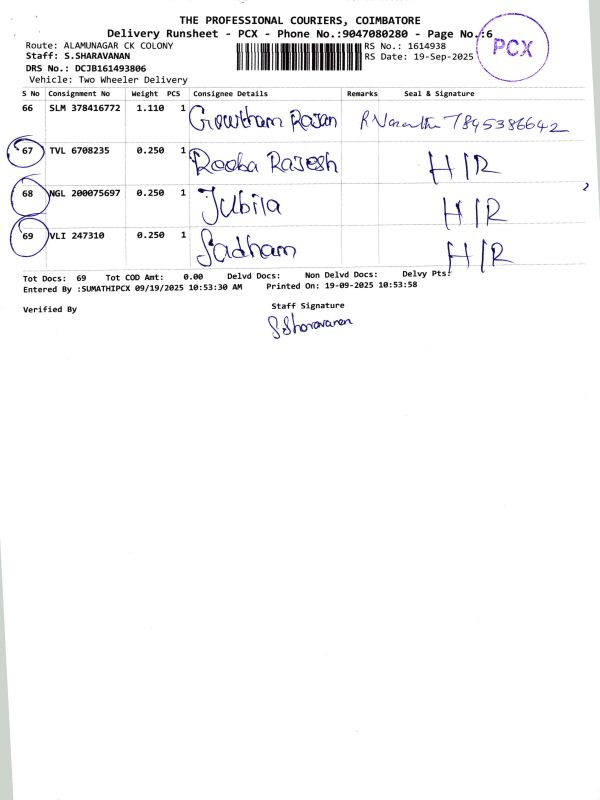 THE PROFESSIONAL COURIERS, COIMBATORE
Delivery Runsheet - PCX - Phone No.:9047080280 - Page No.:6
PCX
Route: ALAMUNAGAR CK COLONY RS No.: 1614938
Staff: S.SHARAVANAN RS Date: 19-Sep-2025
DRS No.: DCJB161493806
Vehicle: Two Wheeler Delivery
S No Consignment No Weight PCS Consignee Details Remarks Seal & Signature
66 SLM 378416772 1.110 1 Gowtham Rajan 7845386642
67 TVL 6708235 0.250 1 Rooba Rajesh H/R
68 NGL 200075697 0.250 1 Jubila H/R
69 VLI 247310 0.250 1 Sadham H/R
Tot Docs: 69 Tot COD Amt: 0.00 Delvd Docs: Non Delvd Docs: Delvy Pts:
Entered By :SUMATHIPCX 09/19/2025 10:53:30 AM Printed On: 19-09-2025 10:53:58
Verified By Staff Signature
S.Sharavanan